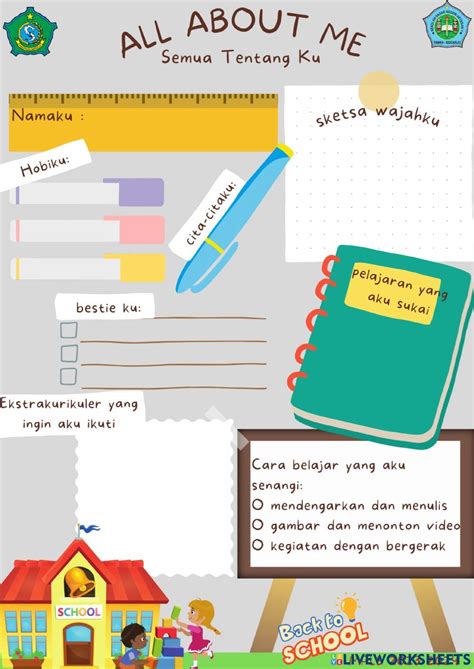 ALL ABOUT ME
Semua Tentang Ku
Namaku :
sketsa wajahku
Hobiku:
cita-citaku:
pelajaran yang
aku sukai
bestie ku:
Ekstrakurikuler yang
ingin aku ikuti
Cara belajar yang aku
senangi:
mendengarkan dan menulis
gambar dan menonton video
kegiatan dengan bergerak
SCHOOL
Back to
SCHOOL
LIVEWORKSHEETS